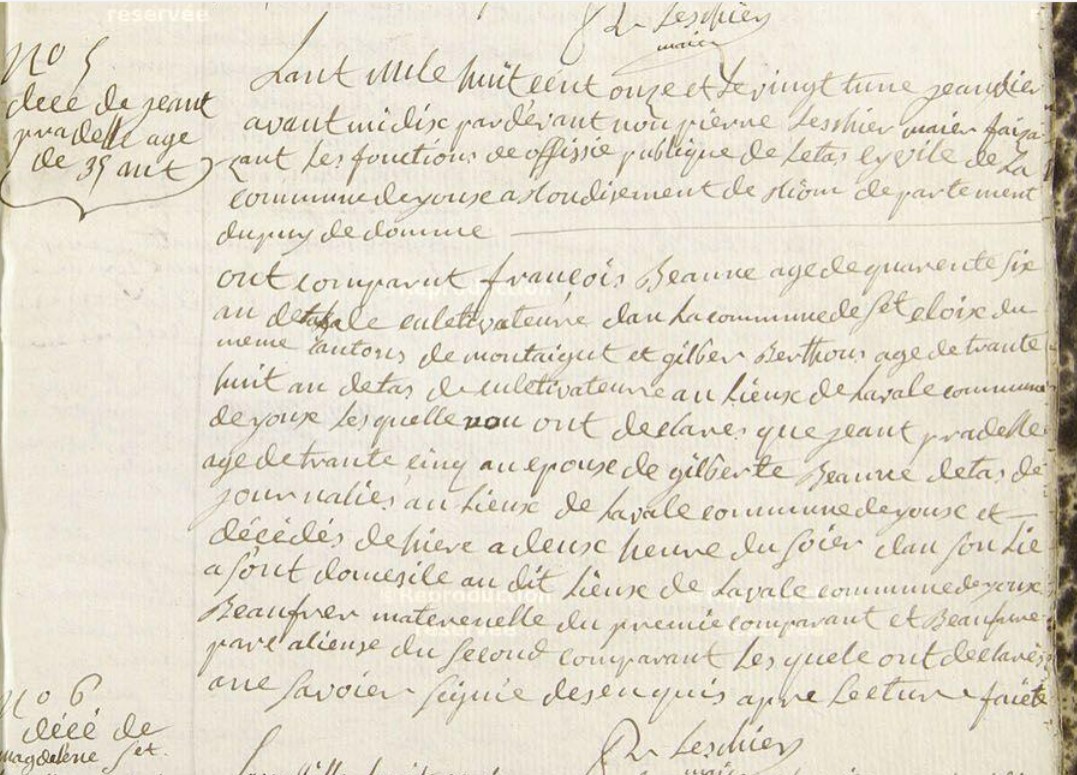 reservée
P Leschier
maier
No 5
décé de jeant
pradelle age
de 35 ant
Lant mile huit cent onze et le vingt tune jeanvier
avant midix par dévant nou pierre Leschier maier faisa
sant les fonctions de offissié publique de Letas cyvile de La
commune de youxe arrondisement de Riom departement
du puy de domme
ont comparut francois Beaune age de quarente six
an détas de culetivateure dan La commune de set eloix du
meme cantons de montaigut et gilber Berthons age de trante
huit an detas de culetivateure au Lieux de Lavale commune
de youxe Lesquelle nou ont declares que jeant pradelle
age de trante cinq an epouse de gilberte Beaune detas de
journaliés au Lieux de Lavale commune de youxe et
décédés de hiere a deuxe heure du soier dan son Lie
a sont domesile au dit Lieux de Lavale commune de youxe
Beaufrer maternelle du premié comparant et Beaufrere
par l'alieuse du second comparant Les quele ont declarés
ane savoier signié de se enquis apre Lecture faiete
P Leschiers
maier
No 6
décé de
magdelene set.